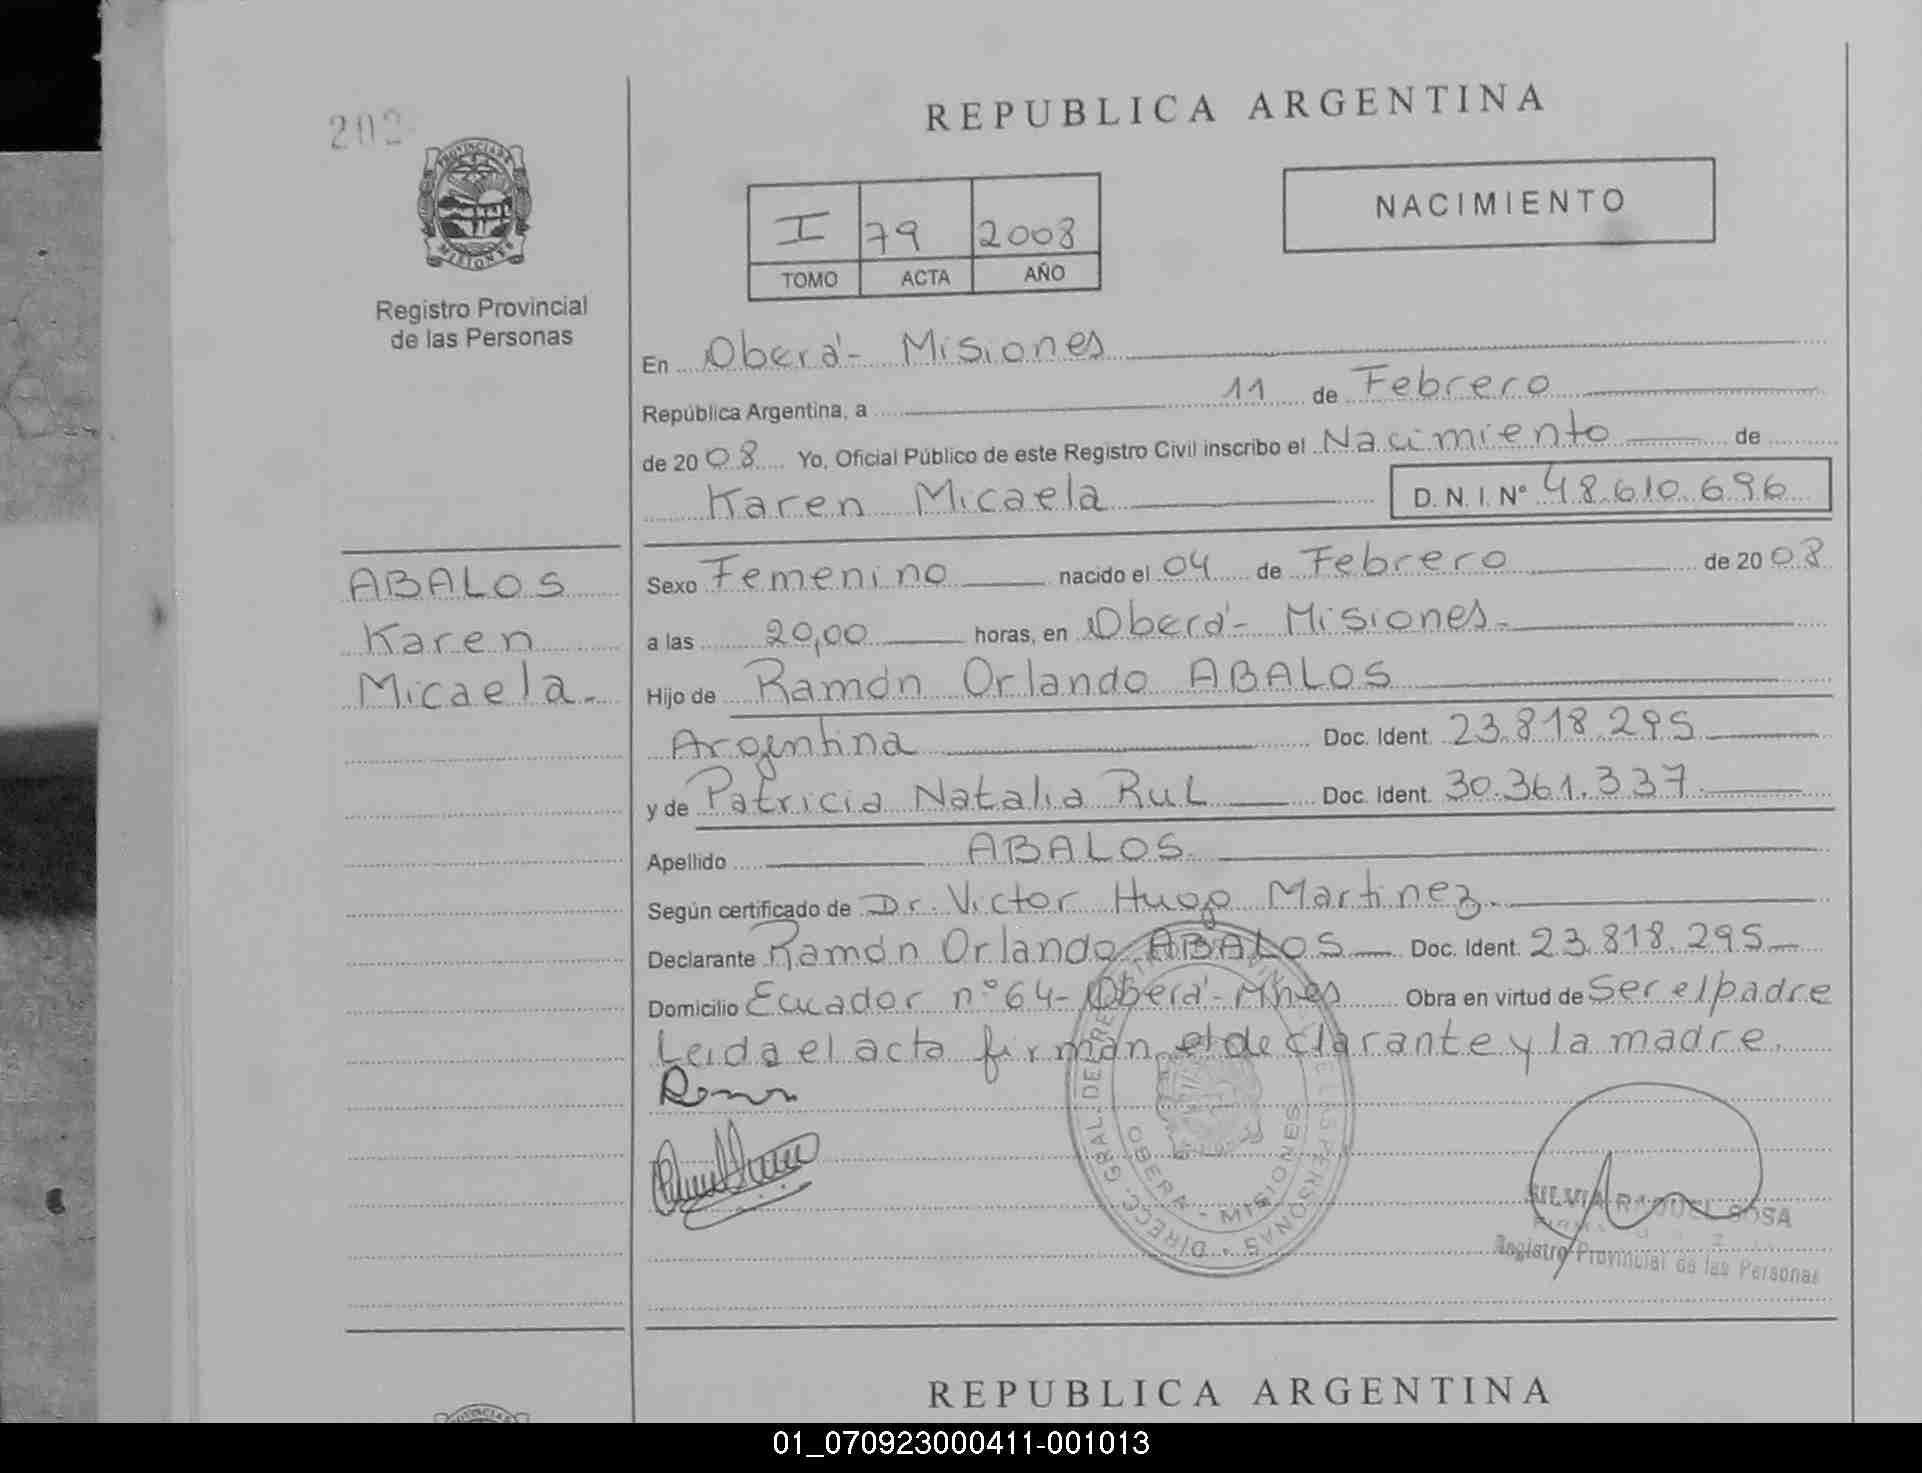 202
REPUBLICA ARGENTINA
PROVINCIA DE
MISIONES
Registro Provincial
de las Personas
I 79 2008
TOMO ACTA AÑO
NACIMIENTO
En Oberá - Misiones
República Argentina, a 11 de Febrero
de 2008 Yo, Oficial Público de este Registro Civil inscribo el Nacimiento de
Karen Micaela D. N. I. Nº 48.610.696
ABALOS
Karen
Micaela.-
Sexo Femenino nacido el 04 de Febrero de 2008
a las 20,00 horas, en Oberá - Misiones.-
Hijo de Ramón Orlando ABALOS
Argentina Doc. Ident. 23.818.295
y de Patricia Natalia RuL Doc. Ident. 30.361.337
Apellido ABALOS.
Según certificado de Dr. Victor Hugo Martinez.
Declarante Ramón Orlando ABALOS Doc. Ident. 23.818.295
Domicilio Ecuador nº 64 - Oberá - Mnes Obra en virtud de Ser el padre
Leida el acta firman el declarante y la madre.
DIRECC. GRAL. DE PERSONAS
OBERA - MISIONES
SILVIA RAQUEL SOSA
Registro Provincial de las Personas
REPUBLICA ARGENTINA
01_070923000411-001013